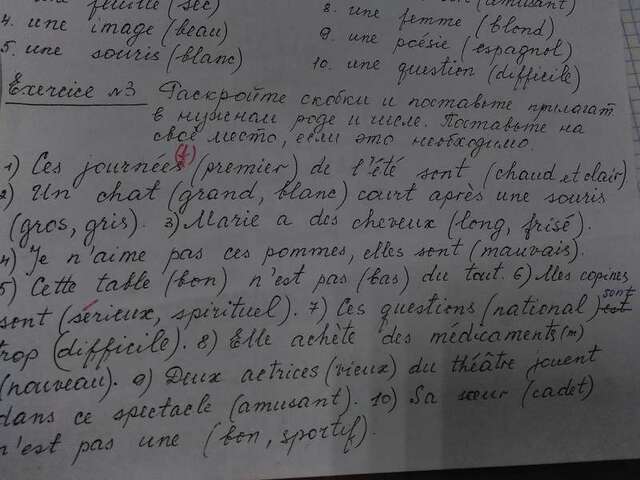 feuille (sec)
4. une image (beau)
5. une souris (blanc)
8. (amusant)
une femme (blond)
9. une poésie (espagnol)
10. une question (difficile)
Exercice №3 Раскройте скобки и поставьте прилагат.
в нужном роде и числе. Поставьте на
своё место, если это необходимо.
1) Ces journées (f) (premier) de l'été sont (chaud et clair).
2) Un chat (grand, blanc) court après une souris
(gros, gris). 3) Marie a des cheveux (long, frisé).
4) Je n'aime pas ces pommes, elles sont (mauvais).
5) Cette table (bon) n'est pas (bas) du tout. 6) Mes copines
sont (sérieux, spirituel). 7) Ces questions (national) sont
trop (difficile). 8) Elle achète des médicaments (m)
(nouveau). 9) Deux actrices (vieux) du théâtre jouent
dans ce spectacle (amusant). 10) Sa sœur (cadet)
n'est pas une (bon, sportif).